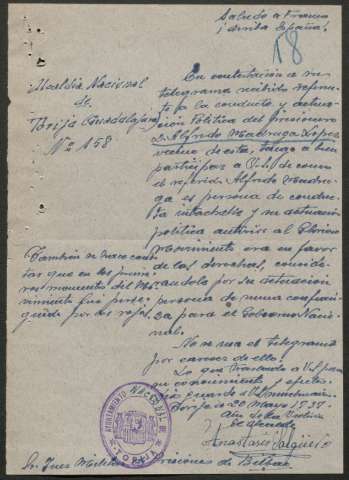 Saludo a Franco
¡Arriba España!
18
Alcaldia Nacional
de
Torija Guadalajara
Nº 158
En contestación a su
telegrama recibido referen-
te a la conducta y actua-
ción Politica del prisionero
D. Alfredo Madruga Lopez
vecino de esta, tengo a bien
participar a V.
el referido Alfredo Madru-
ga es persona de conduc-
ta intachable y su actuación
politica anterior al Glorioso
Movimiento era en favor
de las derechas, conside-
randolo por su actuación
persona de suma confian-
za para el Gobierno Nacio-
nal.
Tambien se hace cons-
tar que en los prime-
ros momentos del Mo-
vimiento fué perse-
guido por los rojos.
No se usa el telegrama
por carecer de ello.
Lo que traslado a V.S. para
su conocimiento y efectos
Dios guarde a V.S. muchos años
Torija 20 Mayo 1937
Año de la Victoria
El Alcalde
Anastasio Salgüero
AYUNTAMIENTO NACIONAL DE
TORIJA
Sr. Juez Militar Prisiones de Bilbao